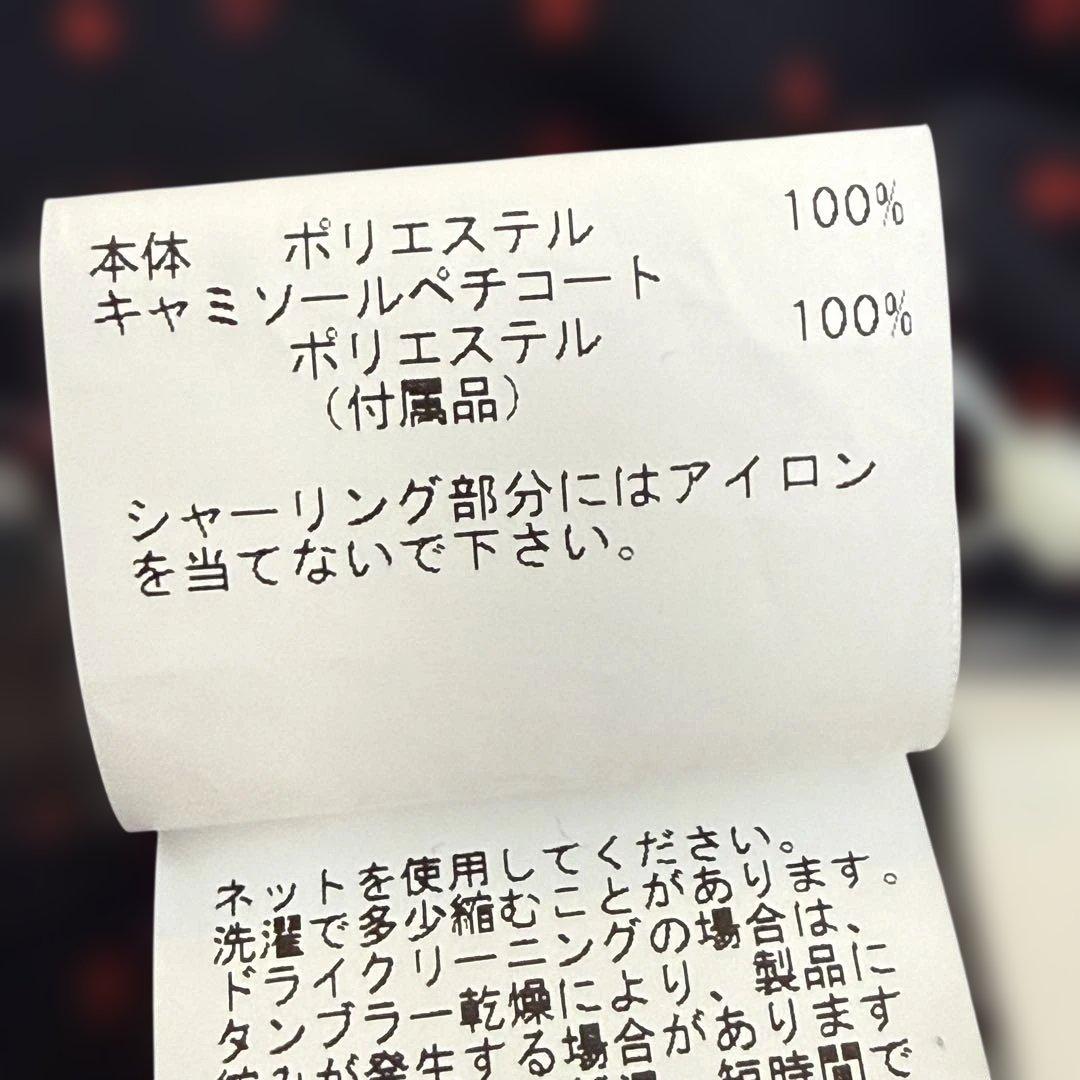 本体 ポリエステル 100%
キャミソールペチコート
ポリエステル 100%
(付属品)
シャーリング部分にはアイロン
を当てないで下さい。
ネットを使用してください。
洗濯で多少縮むことがあります。
ドライクリーニングの場合は、
タンブラー乾燥により、製品に
が発生する場合があります
短時間で